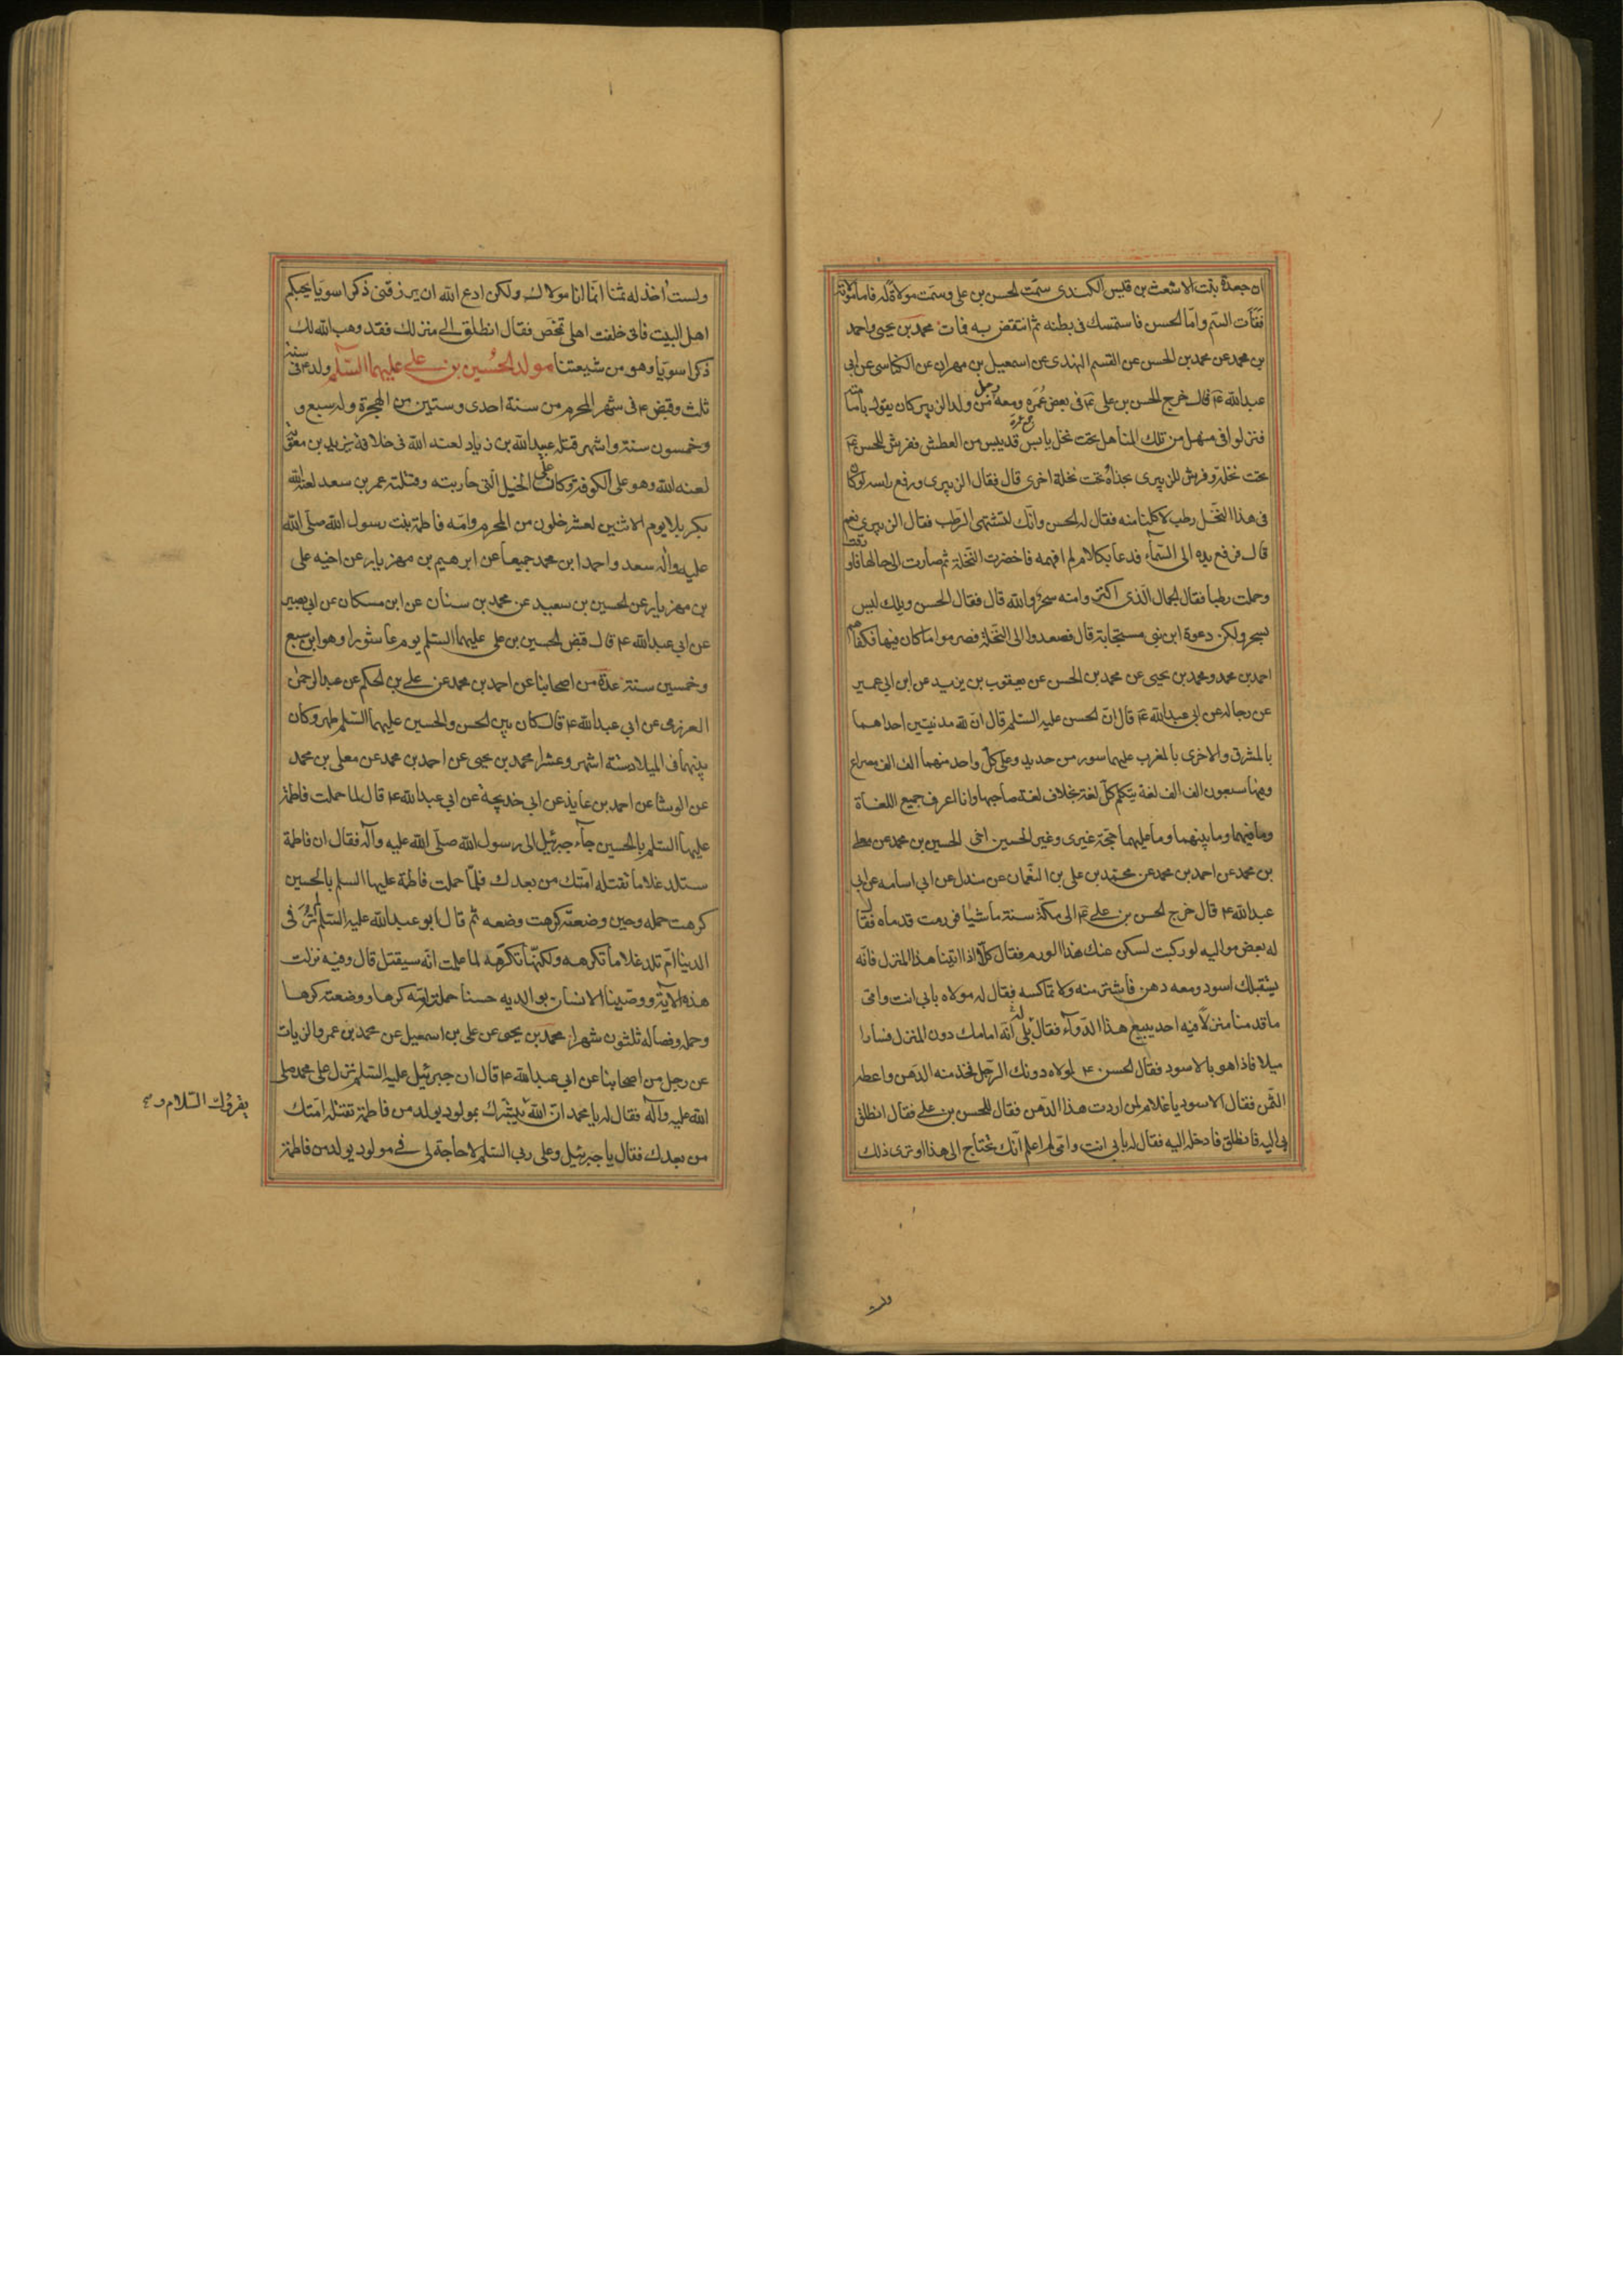 ان جعدة بنت الاشعث بن قيس الكندى سمّت الحسن بن على وسمّت مولاة له فاما مولاته
فقاءت السّم وامّا الحسن فاستمسك فى بطنه ثم انتقض به فمات محمد بن يحيى واحمد
بن محمد عن محمد بن الحسن عن القسم النهدى عن اسمعيل بن مهران عن الكناسى عن ابى
عبدالله ع قال خرج الحسن بن على ع فى بعض عُمَره ومعه رجل من ولد الزبير كان يقول بامامته
فنزلوا فى منهل من تلك المناهل تحت نخل يابس قد يبس من العطش ففرش للحسن ع
تحت نخلة وفرش للزبيرى بحذاه تحت نخلة اخرى قال فقال الزبيرى ورفع راسه لو كان
فى هذا النخل رطب لاكلنا منه فقال له الحسن وانّك لتشتهى الرّطب فقال الزبيرى نعم
قال فرفع يده الى السّماء فدعا بكلام لم افهمه فاخضرت النّخلة ثم صارت الى حالها فاورقت
وحملت رطبا فقال الجمال الّذى اكتروا منه سحرٌ والله قال فقال الحسن ويلك ليس
بسحر ولكن دعوة ابن نبى مستجابة قال فصعدوا الى النّخلة فصرموا ما كان فيها فكفاهم
احمد بن محمد ومحمد بن يحيى عن محمد بن الحسن عن يعقوب بن يزيد عن ابن ابى عمير
عن رجاله عن ابى عبدالله ع قال انّ الحسن عليه السّلم قال انّ لله مدينتين احداهما
بالمشرق والاخرى بالمغرب عليهما سور من حديد وعلى كلّ واحد منهما الف الف مصراع
وفيها سبعون الف الف لغة يتكلم كلّ لغة بخلاف لغة صاحبها وانا اعرف جميع اللغاة
وما فيهما وما بينهما وما عليهما حجّة غيرى وغير الحسين اخى الحسين بن محمد عن معلى
بن محمد عن احمد بن محمد عن محمد بن على بن النّعمان عن صندل عن ابى اسامه عن ابى
عبدالله ع قال خرج الحسن بن على ع الى مكّة سنة ماشيًا فورمت قدماه فقال
له بعض مواليه لو ركبت لسكن عنك هذا الورم فقال كلّا اذا اتينا هذا المنزل فانّه
يستقبلك اسود ومعه دهن فاشتر منه ولا تماكسه فقال له مولاه بابى انت وامّى
ما قدمنا منزلًا فيه احد يبيع هذا الدّواء فقال له بلى انّه امامك دون المنزل فسارا
ميلا فاذا هو بالاسود فقال الحسن ع لمولاه دونك الرّجل فخذ منه الدّهن واعطه
الثّمن فقال الاسود يا غلام لمن اردت هذا الدّهن فقال للحسن بن على فقال انطلق
بى اليه فانطلق فادخله اليه فقال له بابى انت وامّى لم اعلم انّك تحتاج الى هذا او ترى ذلك
ولست
ولست آخذ له ثمنا انّما انا مولاك ولكن ادع الله ان يرزقنى ذكرا سويّا يحبكم
اهل البيت فانى خلفت اهلى تمخض فقال انطلق الى منزلك فقد وهب الله لك
ذكرا سويّا وهو من شيعتنا مولد الحُسين بن على عليهما السّلم ولد ع فى سنة
ثلث وقبض ع فى شهر المحرم من سنة احدى وستين من الهجرة وله سبع و
وخمسون سنة واشهر قتله عبيد الله بن زياد لعنه الله فى خلافة يزيد بن معوية
لعنه الله وهو على الكوفة وكان على الخيل الّتى حاربته وقتلته عمر بن سعد لعنه الله
بكربلا يوم الاثنين لعشر خلون من المحرم وامّه فاطمة بنت رسول الله صلّى الله
عليه وآله سعد واحمد ابن محمد جميعا عن ابرهيم بن مهزيار عن اخيه على
بن مهزيار عن الحسين بن سعيد عن محمد بن سنان عن ابن مسكان عن ابى بصير
عن ابى عبدالله ع قال قبض الحسين بن على عليهما السّلم يوم عاشورا وهو ابن سبع
وخمسين سنة عدّة من اصحابنا عن احمد بن محمد عن على بن الحكم عن عبدالرحمن
العرزمى عن ابى عبدالله ع قال كان بين الحسن والحسين عليهما السّلم طهر وكان
بينهما فى الميلاد ستة اشهر وعشرا محمد بن يحيى عن احمد بن محمد عن معلى بن محمد
عن الوشا عن احمد بن عايذ عن ابى خديجة عن ابى عبدالله ع قال لما حملت فاطمة
عليها السّلم بالحسين جاء جبرئيل الى رسول الله صلّى الله عليه وآله فقال ان فاطمة
ستلد غلاما تقتله امّتك من بعدك فلمّا حملت فاطمة عليها السلم بالحسين
كرهت حمله وحين وضعته كرهت وضعه ثم قال ابو عبدالله عليه السّلم لم تُرَ فى
الدينا امّ تلد غلاما تكرهه ولكنّها تكرّهه لما علمت انّه سيقتل قال وفيه نزلت
هذه الآية ووصّينا الانسان بوالديه حسنا حملته امّه كرها ووضعته كرها
وحمله وفصاله ثلثون شهرا محمد بن يحيى عن على بن اسمعيل عن محمد بن عمرو الزيات
عن رجل من اصحابنا عن ابى عبدالله ع قال ان جبرئيل عليه السّلم نزل على محمد صلى
الله عليه وآله فقال له يا محمد انّ الله يبشّرك بمولود يولد من فاطمة تقتله امّتك
من بعدك فقال يا جبرئيل وعلى ربى السّلم لا حاجة لى فى مولود يولد من فاطمة
يقرؤك السّلام و